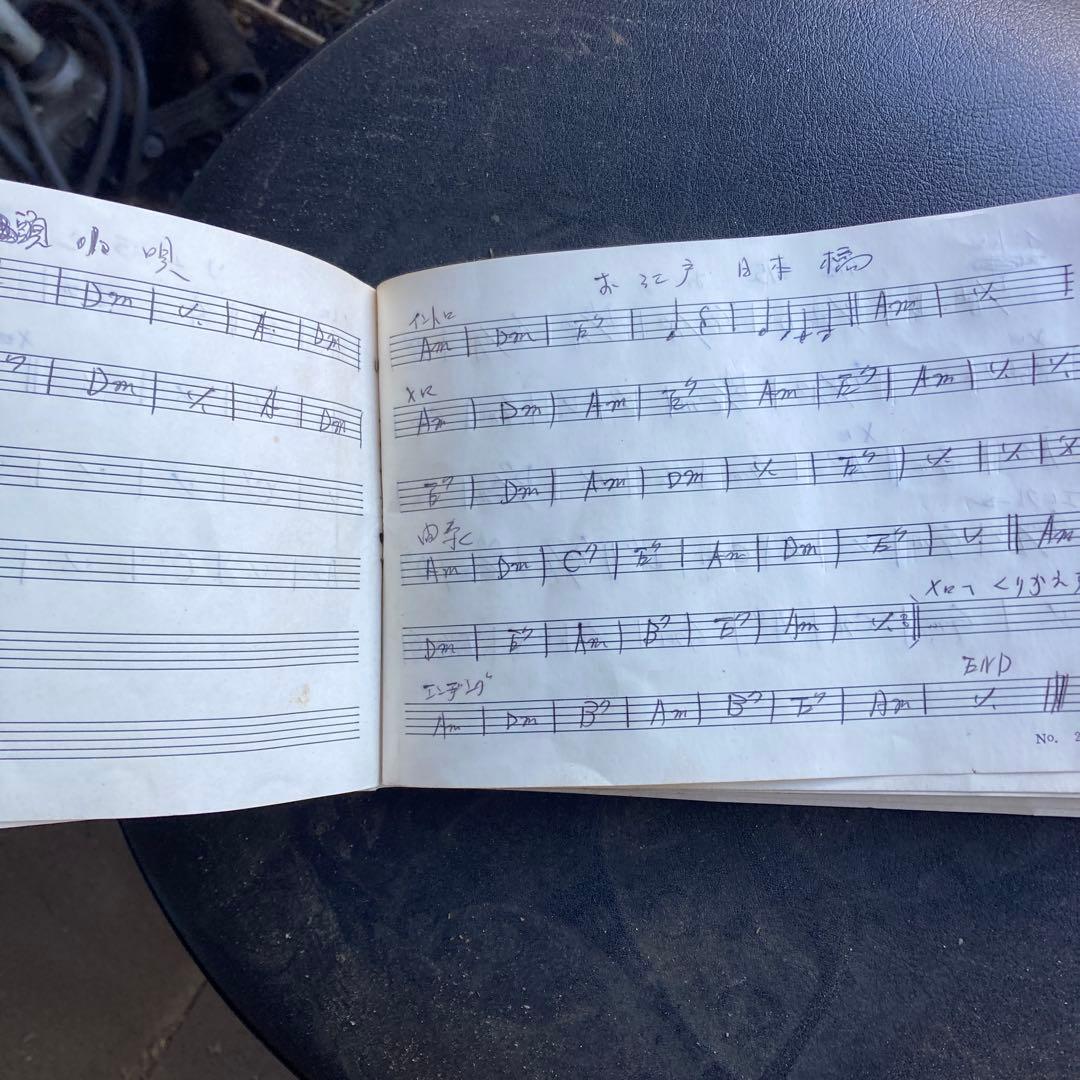 頭 小 唄
Dm | ٪ | A | Dm
7 | Dm | ٪ | A | Dm
お 江戸 日本 橋
イントロ
Am | Dm | E7 | | || Am | ٪
メロ
Am | Dm | Am | E7 | Am | E7 | Am | ٪ | ٪
E7 | Dm | Am | Dm | ٪ | E7 | ٪ | ٪ | ٪
間奏
Am | Dm | C7 | E7 | Am | Dm | E7 | ٪ || Am
メロへ くりかえす
Dm | E7 | Am | B7 | E7 | Am | ٪ :||
エンディング
END
Am | Dm | B7 | Am | B7 | E7 | Am | ٪
No. 2